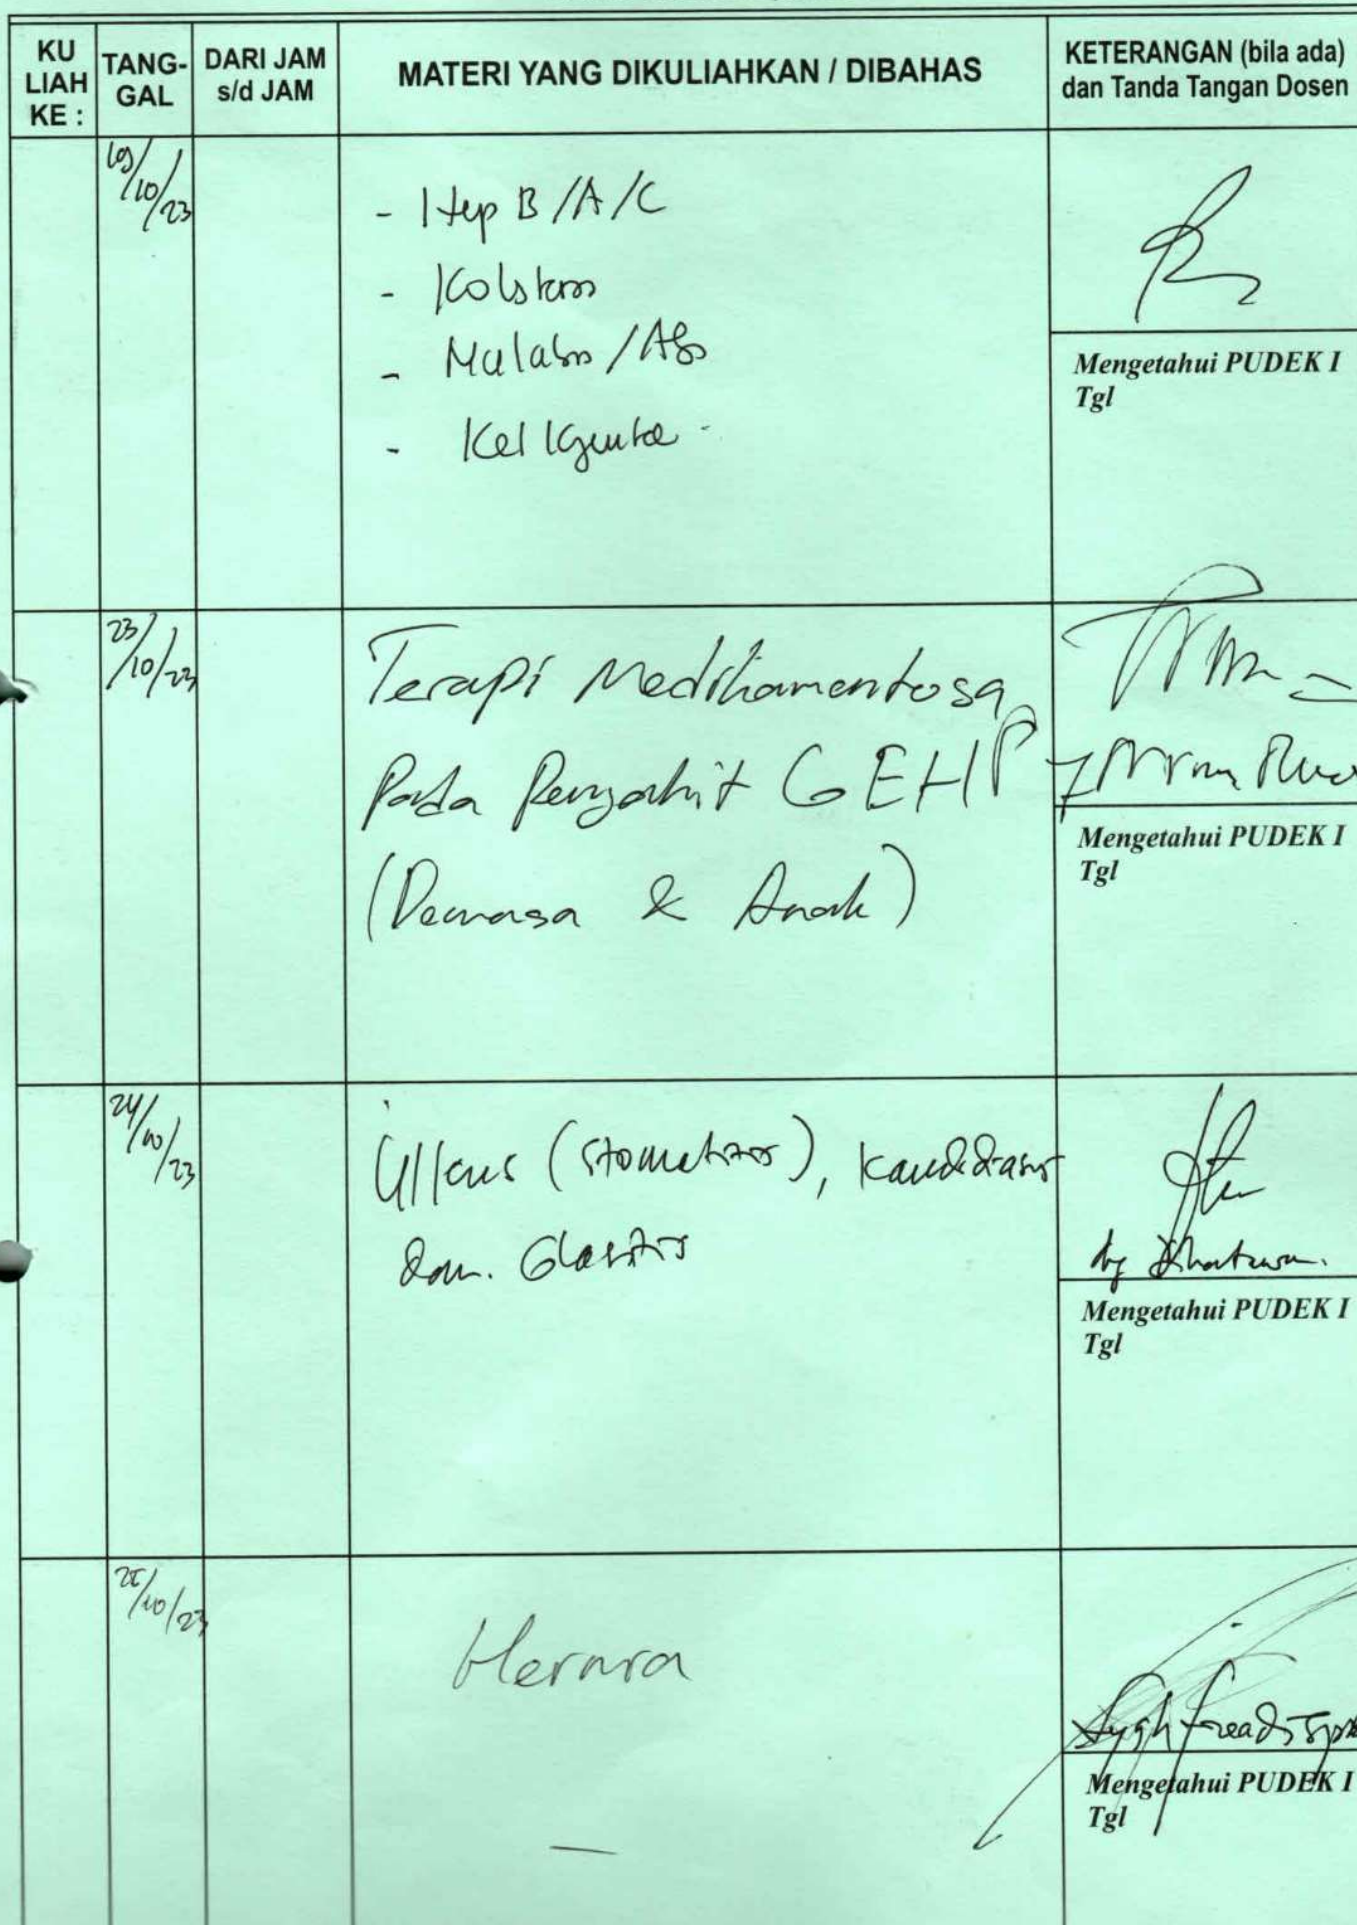 KU
LIAH
KE :
TANG-
GAL
DARI JAM
s/d JAM
MATERI YANG DIKULIAHKAN / DIBAHAS
KETERANGAN (bila ada)
dan Tanda Tangan Dosen
09/10/23
- Hep B /A /C
-
-
- Kel
Mengetahui PUDEK I
Tgl
23/10/23
Terapi Medikamentosa
Pada Penyakit GEHP
(Dewasa & Anak)
Mengetahui PUDEK I
Tgl
24/10/23
Ulkus (stomatitis), kandidiasis
dan. Glositis
Mengetahui PUDEK I
Tgl
25/10/23
Hernia
Mengetahui PUDEK I
Tgl